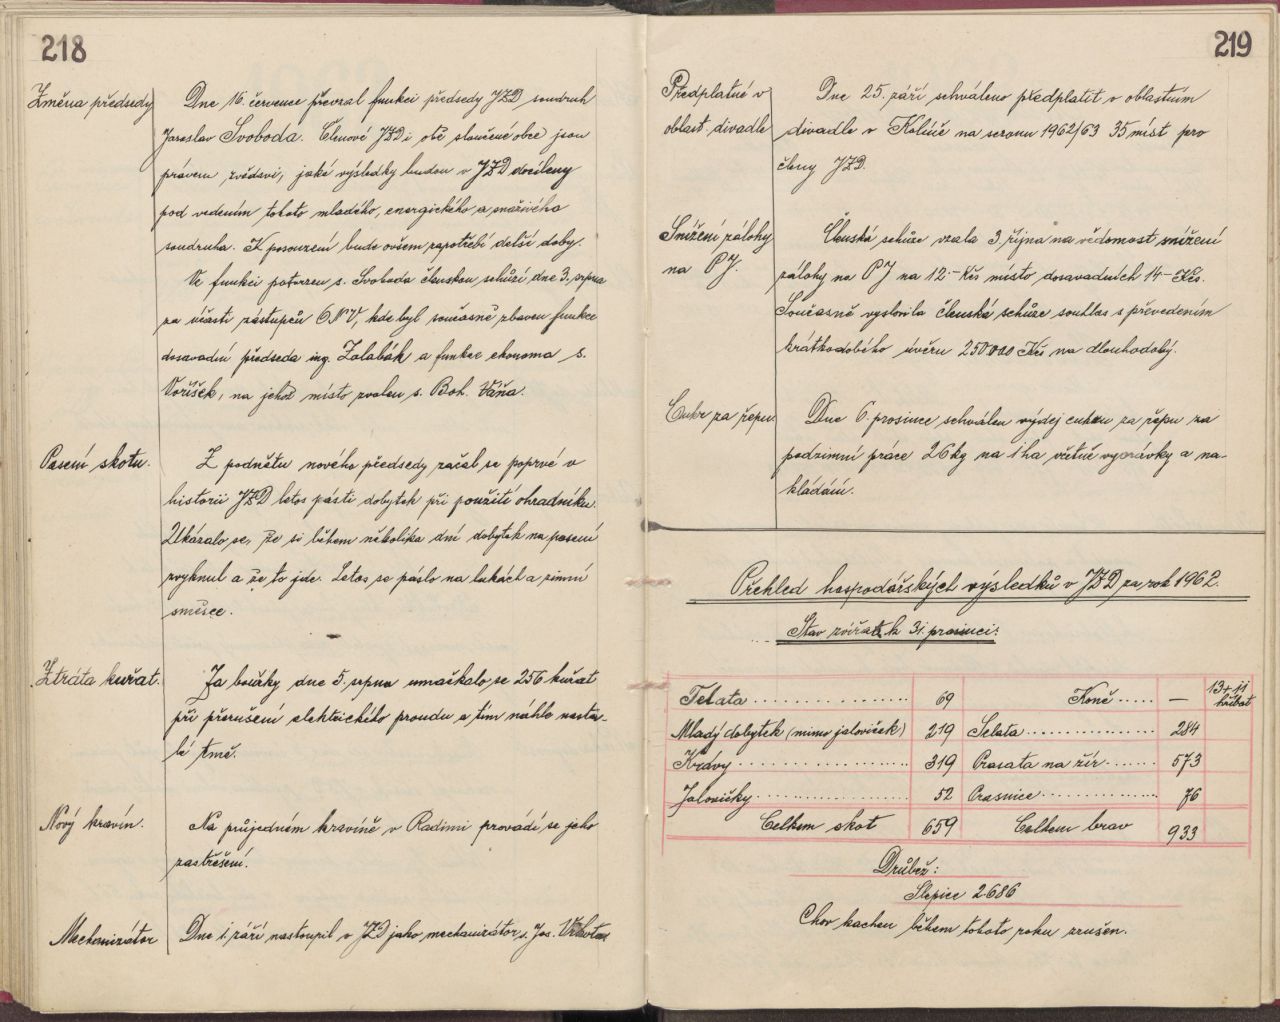 218
Změna předsedy
Dne 16. července převzal funkci předsedy JZD soudruh
Jaroslav Svoboda. Členové JZD i obč. sloučené obce jsou
právem zvědavi, jaké výsledky budou v JZD docíleny
pod vedením tohoto mladého, energického a snaživého
soudruha. K posouzení bude ovšem zapotřebí delší doby.
Ve funkci potvrzen s. Svoboda členskou schůzí dne 3. srpna
za účasti zástupců ONV, kde byl současně zbaven funkce
dosavadní předseda ing. Zalabák a funkce ekonoma s.
Voříšek, na jehož místo zvolen s. Boh. Váňa.
Pasení skotu.
Z podnětu nového předsedy začal se poprvé v
historii JZD letos pásti dobytek při použití ohradníku.
Ukázalo se, že si během několika dní dobytek na pasení
zvyknul a že to jde. Letos se páslo na lukách a zimní
směsce.
Ztráta kuřat.
Za bouřky dne 5. srpna umačkalo se 256 kuřat
při přerušení elektrického proudu a tím náhle nasta-
lé tmě.
Nový kravín.
Na průjezdném kravíně v Radimi provádí se jeho
zastřešení.
Mechanizátor
Dne 1. září nastoupil v JZD jako mechanizátor s. Jos.
219
Předplatné v
oblast. divadle
Dne 25. září schváleno předplatit v oblastním
divadle v Kolíně na sezonu 1962/63 35 míst pro
členy JZD.
Snížení zálohy
na PJ.
Členská schůze vzala 3. října na vědomost snížení
zálohy na PJ na 12.- Kčs místo dosavadních 14.- Kčs.
Současně vyslovila členská schůze souhlas s převedením
krátkodobého úvěru 250.000 Kčs na dlouhodobý.
Cukr za řepu
Dne 6. prosince schválen výdej cukru za řepu za
podzimní práce 26 kg na 1 ha včetně vyorávky a na-
kládání.
Přehled hospodářských výsledků v JZD za rok 1962.
Stav zvířat k 31. prosinci:
Telata 69 Koně — 13 + 11 hříbat
Mladý dobytek (mimo jaloviček) 219 Selata 284
Krávy 319 Prasata na žír 573
Jalovičky 52 Prasnice 76
Celkem skot 659 Celkem brav 933
Drůbež:
Slepice 2686
Chov kachen během tohoto roku zrušen.